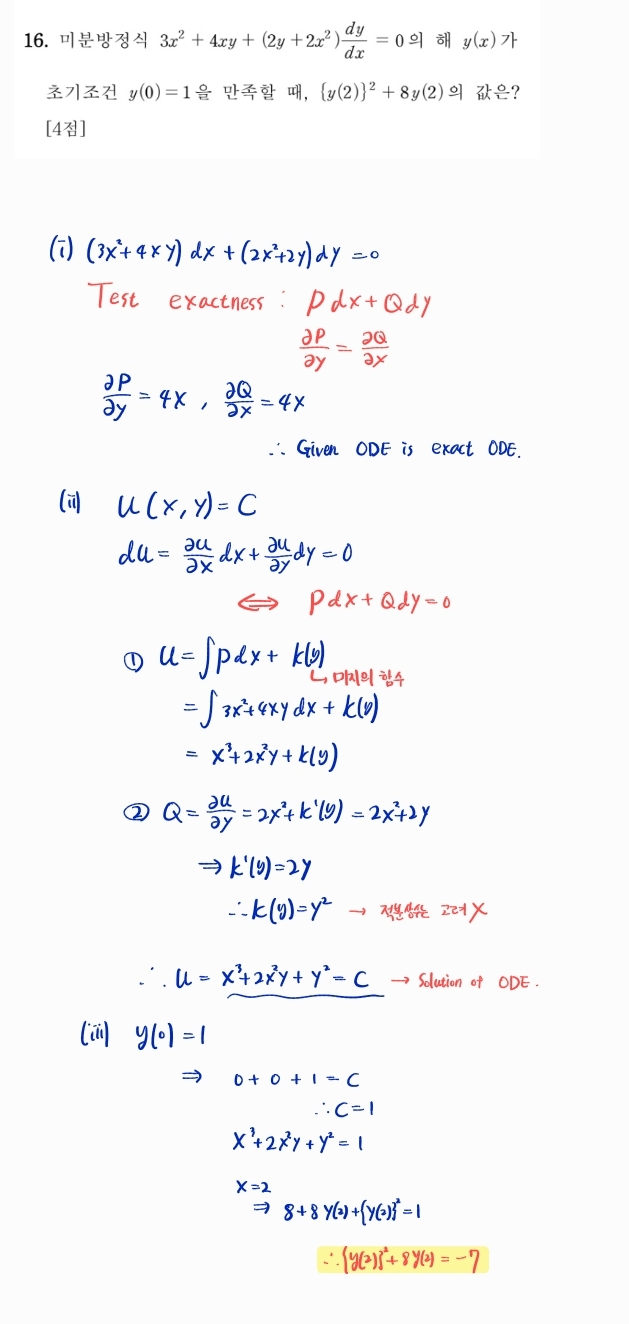 16. 미분방정식 3x² + 4xy + (2y + 2x²) dy/dx = 0의 해 y(x)가
초기조건 y(0) = 1을 만족할 때, {y(2)}² + 8y(2)의 값은?
[4점]
(i) (3x²+4xy) dx + (2x²+2y) dy = 0
Test exactness : P dx + Q dy
∂P/∂y = ∂Q/∂x
∂P/∂y = 4x , ∂Q/∂x = 4x
∴ Given ODE is exact ODE.
(ii) u(x, y) = C
du = ∂u/∂x dx + ∂u/∂y dy = 0
⇔ Pdx + Qdy = 0
① u = ∫pdx + k(y)
↳ 미지의 함수
= ∫3x²+4xy dx + k(y)
= x³+2x²y + k(y)
② Q = ∂u/∂y = 2x²+k'(y) = 2x²+2y
⇒ k'(y) = 2y
∴ k(y) = y² → 적분상수는 고려 X
∴ u = x³+2x²y + y² = C → Solution of ODE.
(iii) y(0) = 1
⇒ 0 + 0 + 1 = C
∴ C = 1
x³+2x²y + y² = 1
x=2
⇒ 8+8y(2)+{y(2)}² = 1
∴ {y(2)}² + 8y(2) = -7